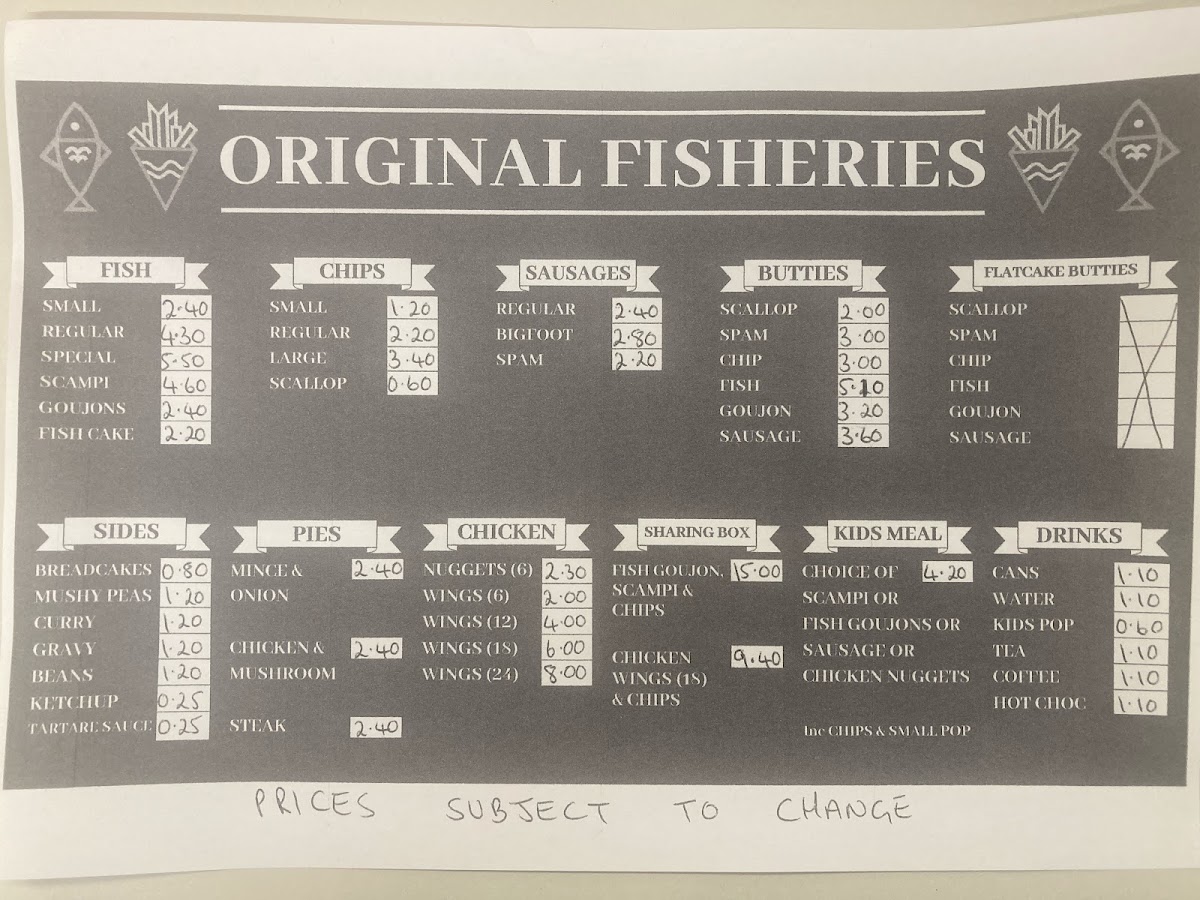 ORIGINAL FISHERIES
FISH
SMALL 2.40
REGULAR 4.30
SPECIAL 5.50
SCAMPI 4.60
GOUJONS 2.40
FISH CAKE 2.20
CHIPS
SMALL 1.20
REGULAR 2.20
LARGE 3.40
SCALLOP 0.60
SAUSAGES
REGULAR 2.40
BIGFOOT 2.80
SPAM 2.20
BUTTIES
SCALLOP 2.00
SPAM 3.00
CHIP 3.00
FISH 5.10
GOUJON 3.20
SAUSAGE 3.60
FLATCAKE BUTTIES
SCALLOP
SPAM
CHIP
FISH
GOUJON
SAUSAGE
SIDES
BREADCAKES 0.80
MUSHY PEAS 1.20
CURRY 1.20
GRAVY 1.20
BEANS 1.20
KETCHUP 0.25
TARTARE SAUCE 0.25
PIES
MINCE & 2.40
ONION
CHICKEN & 2.40
MUSHROOM
STEAK 2.40
CHICKEN
NUGGETS (6) 2.30
WINGS (6) 2.00
WINGS (12) 4.00
WINGS (18) 6.00
WINGS (24) 8.00
SHARING BOX
FISH GOUJON, 15.00
SCAMPI &
CHIPS
CHICKEN 9.40
WINGS (18)
& CHIPS
KIDS MEAL
CHOICE OF 4.20
SCAMPI OR
FISH GOUJONS OR
SAUSAGE OR
CHICKEN NUGGETS
Inc CHIPS & SMALL POP
DRINKS
CANS 1.10
WATER 1.10
KIDS POP 0.60
TEA 1.10
COFFEE 1.10
HOT CHOC 1.10
PRICES SUBJECT TO CHANGE